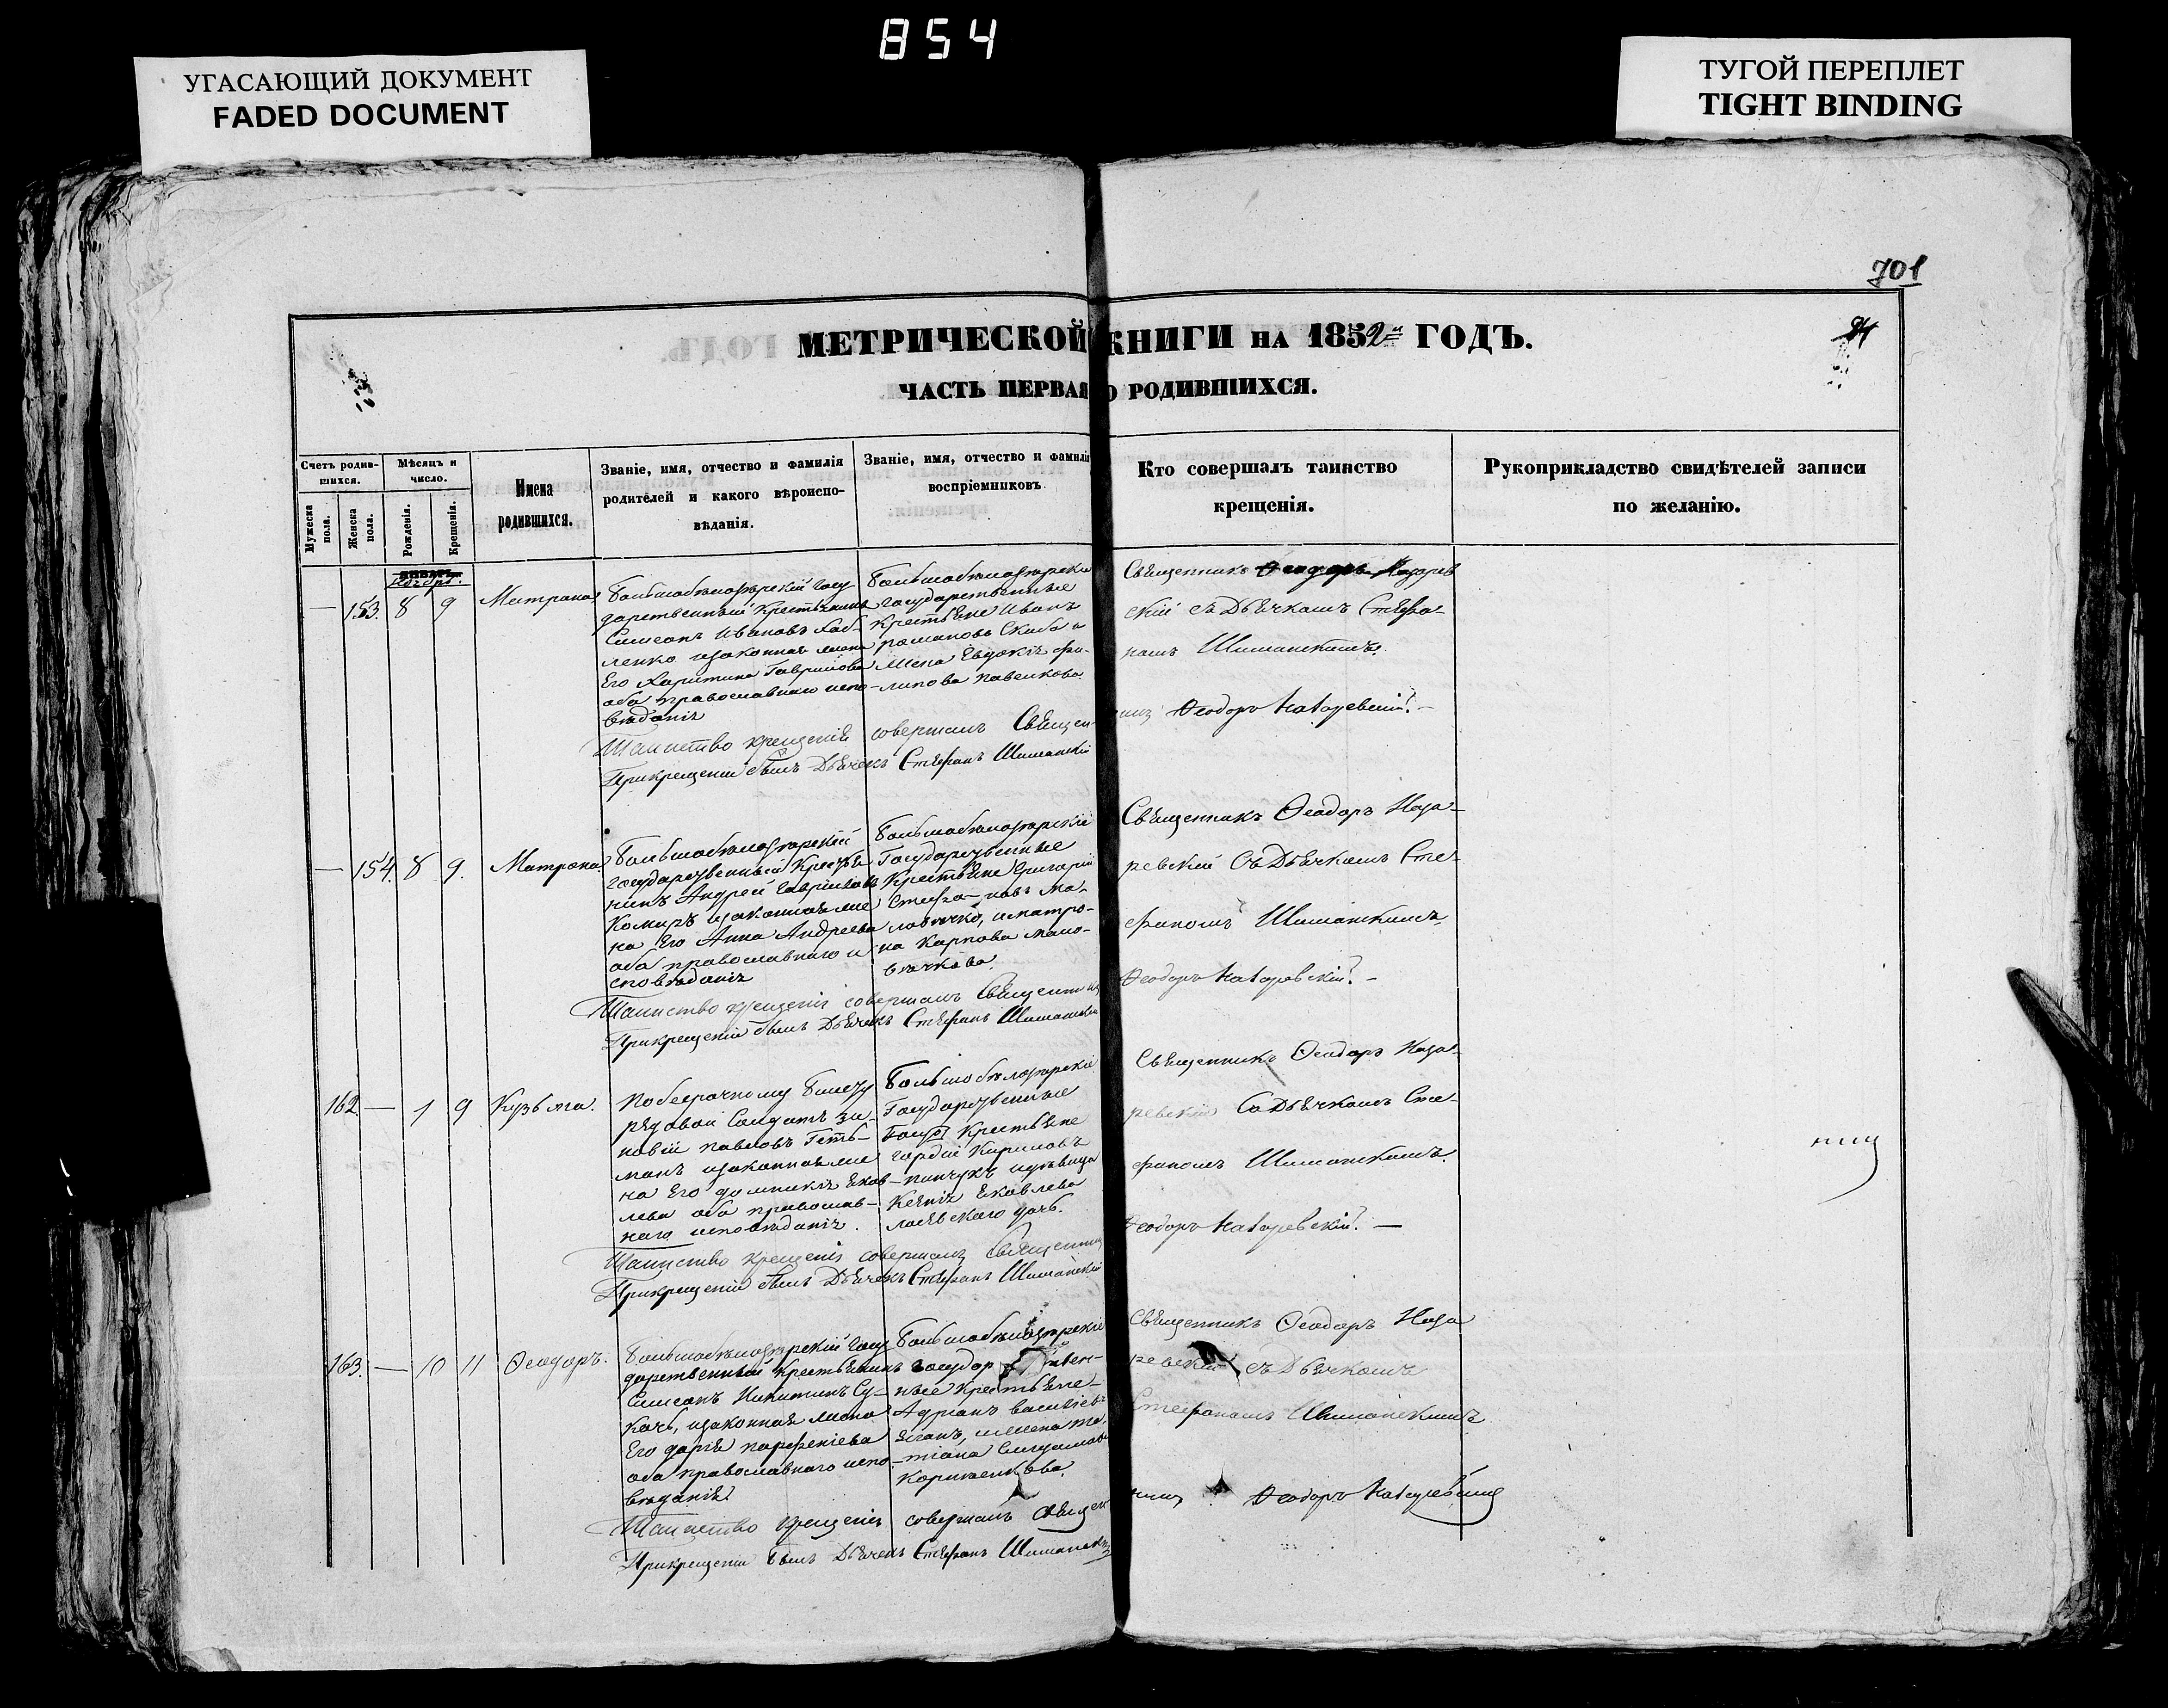 854
УГАСАЮЩИЙ ДОКУМЕНТ
FADED DOCUMENT
ТУГОЙ ПЕРЕПЛЕТ
TIGHT BINDING
701
МЕТРИЧЕСКОЙ КНИГИ НА 1852 ГОДЪ.
ЧАСТЬ ПЕРВАЯ О РОДИВШИХСЯ.
Счетъ родив-
шихся.
Мужеска
пола.
Женска
пола.
Мѣсяцъ и
число.
Рожденія.
Крещенія.
Имена
родившихся.
Званіе, имя, отчество и фамилія
родителей и какого вѣроиспо-
вѣданія.
Званіе, имя, отчество и фамилія
воспріемниковъ.
Кто совершалъ таинство
крещенія.
Рукоприкладство свидѣтелей записи
по желанію.
Ноябрь.
— 153. 8 9 Матрона
Большобѣлозѣрскій госу
дарственный Крестьянинъ
Симеонъ Ивановъ
ленко изаконная жена
Его Харитина Гаврилова
оба православнаго испо-
вѣданія
Большобѣлозѣрскіе
государственные
крестьяне Иванъ
романовъ Скиба и
жена Евдокія фи-
липова павенкова
Священникъ Феодоръ Назарев
скій съ Дьячкомъ Стефа-
номъ Шиманскимъ.
Таинство крещенія совершалъ Священ-
никъ Феодоръ Назаревскій. —
При крещеніи былъ Дьячекъ Стефанъ Шиманскій
— 154. 8 9. Матрона.
Большобѣлозѣрскій
государственный Крестья
нинъ Андрей Гавриловъ
Комиръ изаконная же
на Его Анна Андреева
оба православнаго и
сповѣданія
Большобѣлозѣрскіе
Государственные
Крестьяне Григорій
Стефановъ Ма-
ловичко, и матро-
на Карпова мало-
вичкова.
Священникъ Феодоръ Наза-
ревскій Съ Дьячкомъ Сте-
фаномъ Шиманскимъ.
Таинство крещенія совершалъ Священникъ
Феодоръ Назаревскій. —
При крещеніи былъ Дьячекъ Стефанъ Шиманскій
162 — 1 9 Кузьма.
По безсрочному билету
рядовой Солдатъ Зи-
новій павловъ Геть-
манъ изаконная же
на Его домникія Яков-
лева оба православ-
наго исповѣданія.
Большобѣлозѣрскіе
Государственные
Крестьяне
гордій Кириловъ
пинчукъ идѣвица
Ксенія Яковлева
дочь.
Священникъ Феодоръ Наза-
ревскій Съ Дьячкомъ Сте-
фаномъ Шиманскимъ.
Таинство крещенія совершалъ Священникъ
Феодоръ Назаревскій. —
При крещеніи былъ Дьячекъ Стефанъ Шиманскій
163. — 10 11 Феодоръ.
Большобѣлозѣрскій госу
дарственный Крестьянинъ
Симеонъ Никитинъ Су-
качь, изаконная жена
Его дарія парфеніева
оба православнаго испо-
вѣданія
Большобѣлозѣрскіе
государственные
Крестьяне
Адріанъ василіевъ
и жена та-
тіана
Священникъ Феодоръ Наза
ревскій съ Дьячкомъ
Стефаномъ Шиманскимъ
Таинство крещенія совершалъ Священ
никъ Феодоръ Назаревскій
При крещеніи былъ Дьячекъ Стефанъ Шиманскій